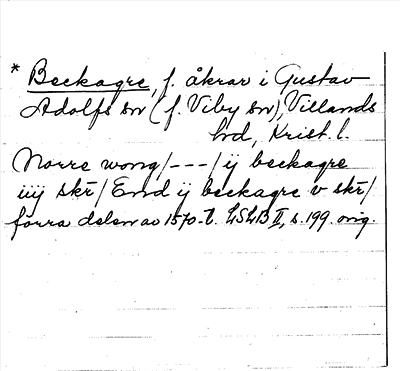 * Beckagre, f. åkrar i Gustav
Adolfs sn (f. Viby sn), Villands
hd, Krist. l.
Norre wong/---/ij beckagre
iiij skr/ End ij beckagre v skr/
förra delen av 1570-t. LSLB II, s. 199. orig.